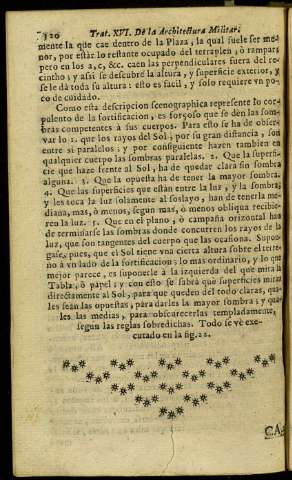 320 Trat. XVI. De la Architectura Militar,
mente la que cae dentro de la Plaza, la qual suele ser me-
nor, por estàr lo restante ocupado del terraplen, ò rampar;
pero en los a, c, &c. caen las perpendiculares fuera del re-
cintho; y asi se descubre la altura, y superficie exterior, y
se le dà toda su altura: esto es facil, y solo requiere vn po-
co de cuidado.
Como esta descripcion scenographica represente lo cor-
pulento de la fortificacion, es forçoso que se dèn las som-
bras competentes à sus cuerpos. Para esto se ha de obser-
var lo 1. que los rayos del Sol, por su gran distancia, son
entre si paralelos; y por consiguiente hazen tambien en
qualquier cuerpo las sombras paralelas. 2. Que la superfi-
cie que haze frente al Sol, ha de quedar clara sin sombra
alguna. 3. Que la opuesta ha de tener la mayor sombra.
4. Que las superficies que estàn entre la luz, y la sombra,
y les toca la luz solamente al soslayo, han de tenerla me-
diana, mas, ò menos, segun mas, ò menos obliqua recibie-
ren la luz. 5. Que en el plano, ò campaña orizontal han
de terminarse las sombras donde concurren los rayos de la
luz, que son tangentes del cuerpo que las ocasiona. Supon-
gase, pues, que el Sol tiene vna cierta altura sobre el terre-
no à vn lado de la fortificacion; lo mas ordinario, y lo que
mejor parece, es suponerle à la izquierda del que mira la
Tabla, ò papel; y con esto se sabrà què superficies miran
directamente al Sol, para que queden del todo claras, qua-
les sean las opuestas, para darles la mayor sombra; y qua-
les las medias, para obscurecerlas templadamente,
segun las reglas sobredichas. Todo se vè exe-
cutado en la fig. 22.